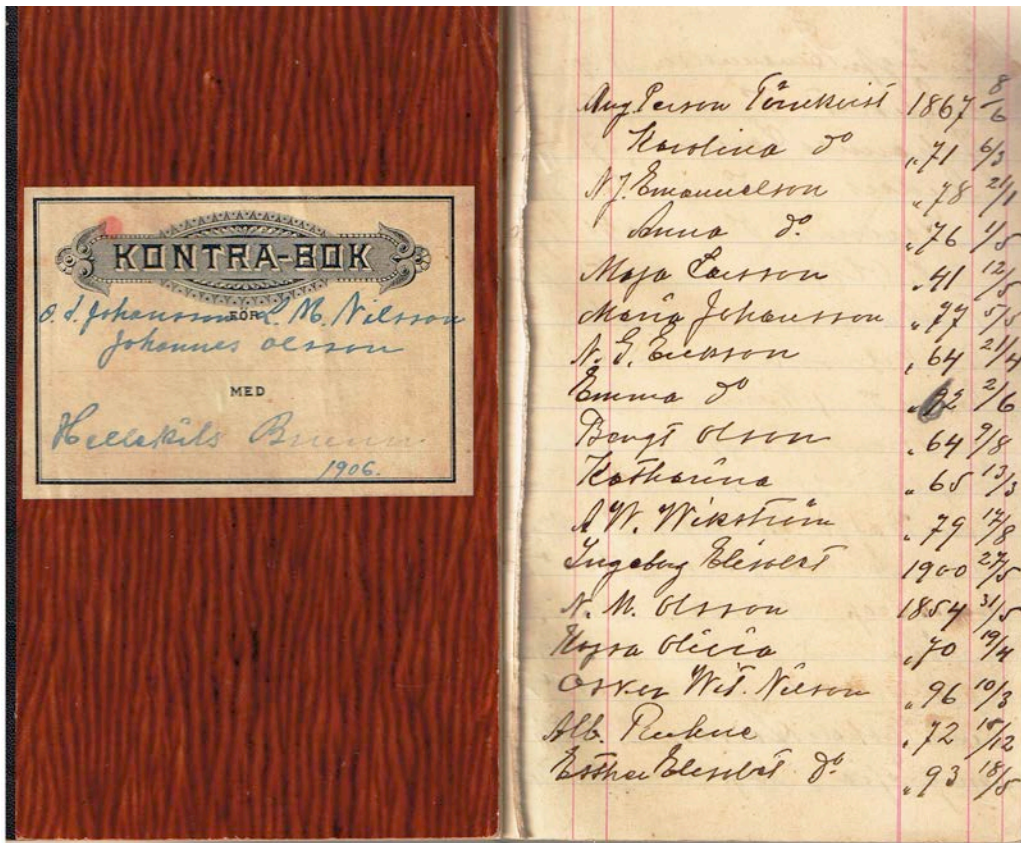 KONTRA-BOK
FÖR
O. L. Johansson L. M. Nilsson
Johannes Olsson
MED
Hellekils Brunn
1906.
Aug. Person Törnkvist 1867 8/6
Karolina do „71 6/3
N J. Emanuelson „78 21/1
Anna do „76 1/5
Maja Larsson „41 12/5
Maria Johansson „77 5/5
N. G. Erikson „64 21/4
Emma do 2/6
Bengt Olson „64 9/8
Katharina „65 13/3
A W. Wikström „79 17/8
Ingeborg Elisabet 1900 27/5
N. M. Olsson 1854 31/5
Olivia „70 19/4
Oskar Nilson „96 10/3
Alb. „72 15/12
Esther Elisabet do „93 18/5